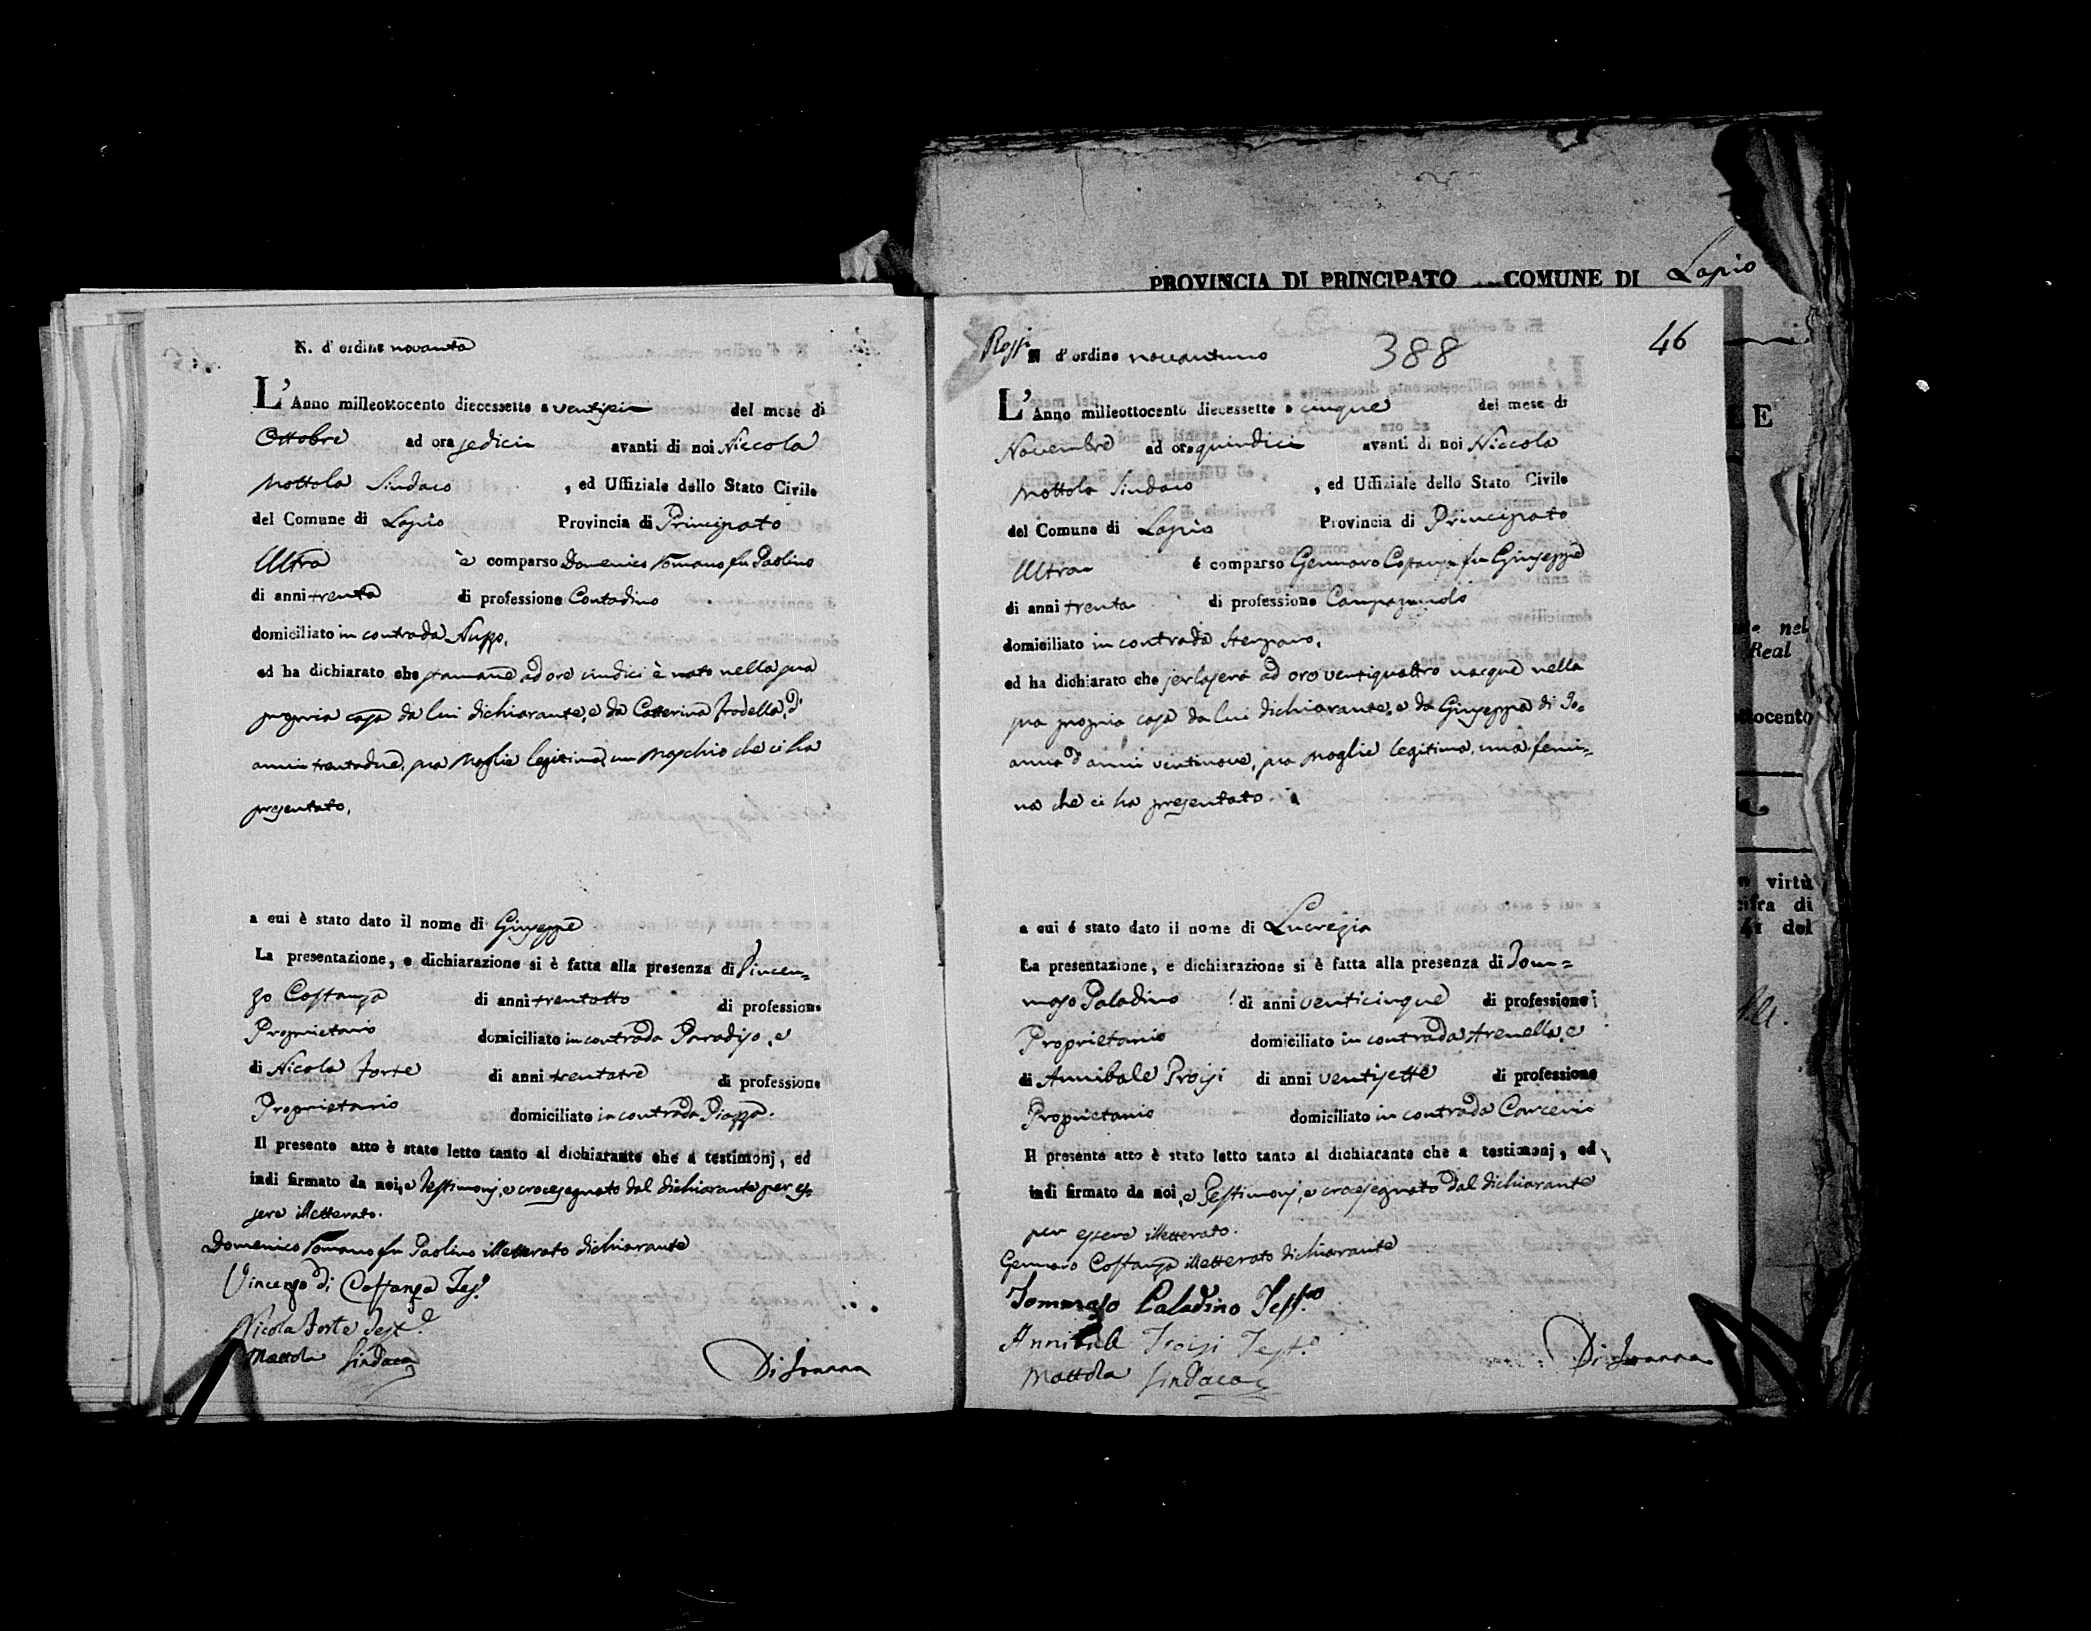 PROVINCIA DI PRINCIPATO COMUNE DI Lapio
N. d'ordine novanta
L'Anno milleottocento diecessette a ventisei del mese di
Ottobre ad ora sedici avanti di noi Niccola
Mottola Sindaco , ed Uffiziale dello Stato Civile
del Comune di Lapio Provincia di Principato
Ultra è comparso Domenico Romano fu Paolino
di anni trenta di professione Contadino
domiciliato in contrada Nuzzo,
ed ha dichiarato che stamane, ad ore undici è nato nella sua
propria casa da lui dichiarante, e da Catterina Frodella, d'
anni trentadue, sua Moglie legitima, un Maschio che ci ha
presentato,
a cui è stato dato il nome di Giuseppe
La presentazione, e dichiarazione si è fatta alla presenza di Vincen=
zo Costanza di anni trentotto di professione
Proprietario domiciliato in contrada Paradiso, e
di Nicola Forte di anni trentatre di professione
Proprietario domiciliato in contrada Piazza.
Il presente atto è stato letto tanto al dichiarante che a testimonj, ed
indi firmato da noi, e Testimonj, e crocesegnato dal dichiarante per es
sere illetterato.
Domenico Romano fu Paolino illetterato dichiarante
Vincenzo di Costanza Tes.
Nicola Forte Test.
Mottola Sindaco
Di Ioanna
Rossi
N d'ordine novantuno 388 46
L'Anno milleottocento diecessette a cinque del mese di
Novembre ad ora quindici avanti di noi Niccola
Mottola Sindaco , ed Uffiziale dello Stato Civile
del Comune di Lapio Provincia di Principato
Ultra é comparso Gennaro Costanza fu Giuseppe
di anni trenta di professione Campagnolo
domiciliato in contrada
ed ha dichiarato che jerlasera ad ore ventiquattro nacque nella
sua propria casa da lui dichiarante, e da Giuseppa di Io=
anna d'anni ventinove, sua moglie legitima, una femi=
na che ci ha presentato.
a cui é stato dato il nome di Lucrezia
La presentazione, e dichiarazione si è fatta alla presenza di Tom=
maso Paladino di anni venticinque di professione
Proprietario domiciliato in contrada Arenella, e
di Annibale Troisi di anni ventisette di professione
Proprietario domiciliato in contrada Carceri
Il presente atto è stato letto tanto al dichiarante che a testimonj, ed
indi firmato da noi, e Testimonj, e crocesegnato dal dichiarante
per essere illetterato.
Gennaro Costanza illetterato dichiarante
Tommaso Paladino Test.o
Annibale Troisi Test.o
Mottola Sindaco
Di Ioanna
E
nel
Real
ttocento
virtù
cifra di
del